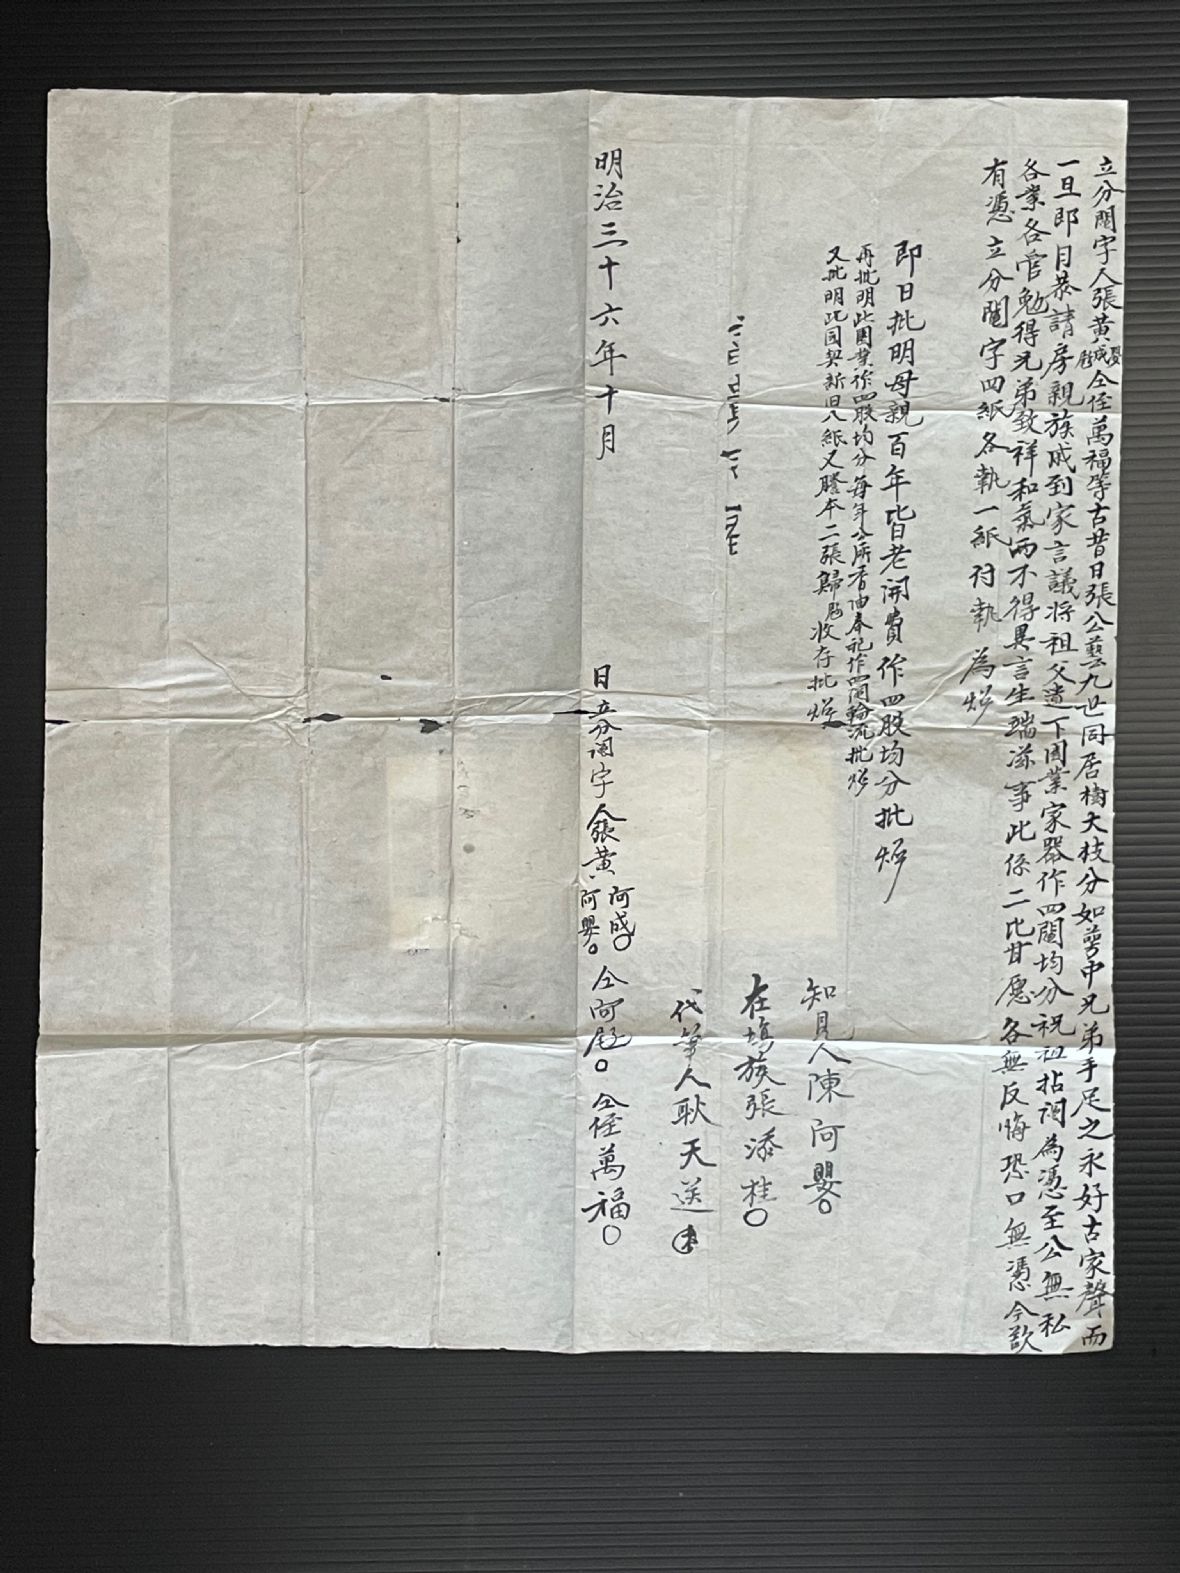 立分鬮字人張黃成嬰仝侄萬福等古昔日張公藝九世同居樹大枝分如萼中兄弟手足之永好古家聲而
一旦即目恭請房親族戚到家言議將祖父遺下園業家器作四鬮均分祝祖拈鬮為憑至公無私
各業各管勉得兄弟致祥和氣而不得異言生端滋事此係二比甘愿各無反悔恐口無憑今欲
有憑立分鬮字四紙各執一紙付執為炤
即日批明母親百年皆老開費作四股均分批炤
再批明此園業作四股均分每年公所香油奉祀作四鬮輪流批炤
又批明此園契新旧八紙又謄本二張歸收存批炤
知見人陳阿嬰
在場族張添桂
代筆人耿天送
明治三十六年十月 日立分鬮字人張黃阿成 阿嬰 仝阿 仝侄萬福